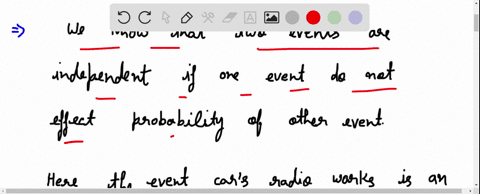 ⇒ We know that two events are
independent if one event do not
effect probability of other event.
Here the event car's radio works is an